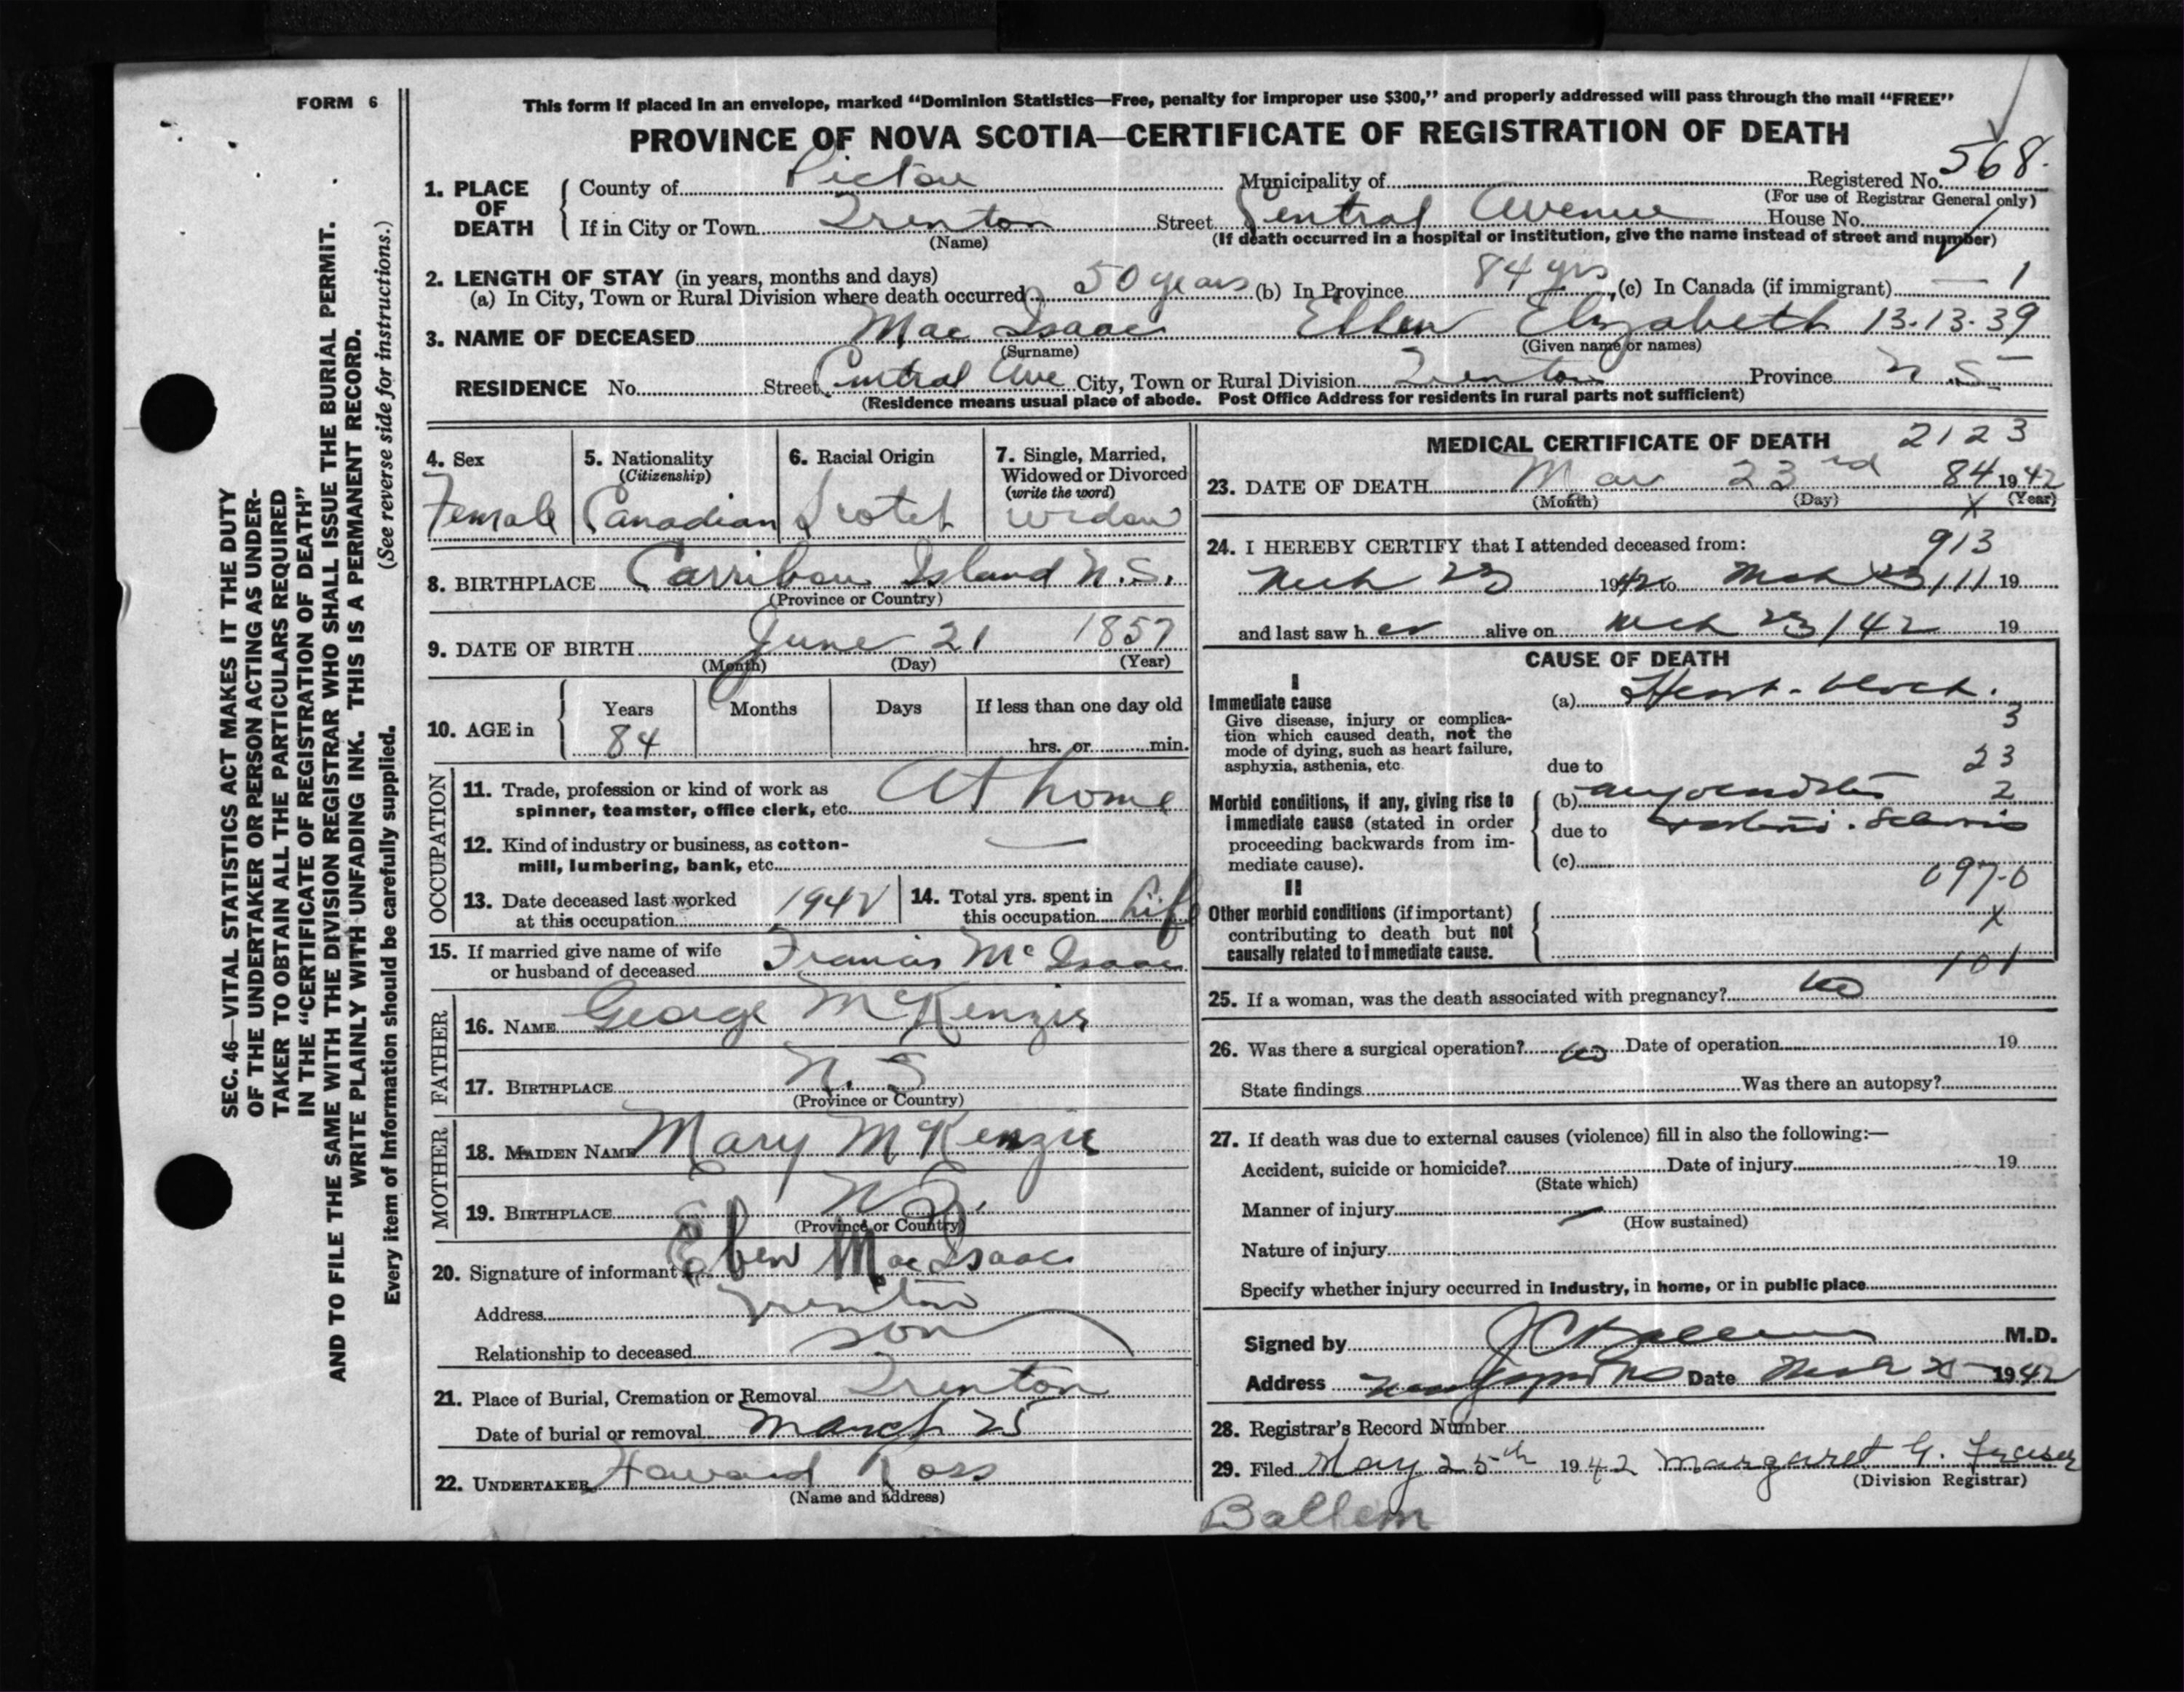 FORM 6
This form if placed in an envelope, marked “Dominion Statistics—Free, penalty for improper use $300,” and properly addressed will pass through the mail “FREE”
PROVINCE OF NOVA SCOTIA—CERTIFICATE OF REGISTRATION OF DEATH
568.
1. PLACE OF DEATH
County of Pictou Municipality of Registered No.
(For use of Registrar General only)
If in City or Town Trenton Street Central Avenue House No.
(Name) (If death occurred in a hospital or institution, give the name instead of street and number)
2. LENGTH OF STAY (in years, months and days)
(a) In City, Town or Rural Division where death occurred 50 years (b) In Province 84 yrs, (c) In Canada (if immigrant) — 1
3. NAME OF DECEASED Mac Isaac Ellen Elizabeth 13-13-39
(Surname) (Given name or names)
RESIDENCE No. Street Central Ave City, Town or Rural Division Trenton Province N.S.
(Residence means usual place of abode. Post Office Address for residents in rural parts not sufficient)
4. Sex
Female
5. Nationality
(Citizenship)
Canadian
6. Racial Origin
Scotch
7. Single, Married,
Widowed or Divorced
(write the word)
Widow
8. BIRTHPLACE Carribou Island N.S.
(Province or Country)
9. DATE OF BIRTH June 21 1857
(Month) (Day) (Year)
10. AGE in
Years Months Days If less than one day old
84 hrs. or min.
OCCUPATION
11. Trade, profession or kind of work as
spinner, teamster, office clerk, etc. At home
12. Kind of industry or business, as cotton-
mill, lumbering, bank, etc. —
13. Date deceased last worked
at this occupation 1942
14. Total yrs. spent in
this occupation Life
15. If married give name of wife
or husband of deceased Francis McIsaac
FATHER
16. NAME George McKenzie
17. BIRTHPLACE N. S
(Province or Country)
MOTHER
18. MAIDEN NAME Mary McKenzie
19. BIRTHPLACE N.S.
(Province or Country)
20. Signature of informant Eben MacIsaac
Address Trenton
Relationship to deceased son
21. Place of Burial, Cremation or Removal Trenton
Date of burial or removal March 25
22. UNDERTAKER Howard Ross
(Name and address)
MEDICAL CERTIFICATE OF DEATH 2123
23. DATE OF DEATH Mar 23rd 84 1942
(Month) (Day) X (Year)
24. I HEREBY CERTIFY that I attended deceased from:
913
Mch 23 1942 to Mch 23 111 19
and last saw her alive on Mch 23/42 19
CAUSE OF DEATH
I
Immediate cause
Give disease, injury or complica-
tion which caused death, not the
mode of dying, such as heart failure,
asphyxia, asthenia, etc
(a) Heart-block.
3
due to 23
Morbid conditions, if any, giving rise to
immediate cause (stated in order
proceeding backwards from im-
mediate cause).
(b) 2
due to
(c)
097-0
II
Other morbid conditions (if important)
contributing to death but not
causally related to immediate cause.
X
101
25. If a woman, was the death associated with pregnancy? no
26. Was there a surgical operation? no Date of operation 19
State findings Was there an autopsy?
27. If death was due to external causes (violence) fill in also the following:—
Accident, suicide or homicide? Date of injury 19
(State which)
Manner of injury
(How sustained)
Nature of injury
Specify whether injury occurred in industry, in home, or in public place
Signed by J C Ballem M.D.
Address New Glasgow NS Date Mch 1942
28. Registrar's Record Number
29. Filed May 25th 1942 Margaret G. Fraser
(Division Registrar)
Ballem
SEC. 46—VITAL STATISTICS ACT MAKES IT THE DUTY
OF THE UNDERTAKER OR PERSON ACTING AS UNDER-
TAKER TO OBTAIN ALL THE PARTICULARS REQUIRED
IN THE “CERTIFICATE OF REGISTRATION OF DEATH”
AND TO FILE THE SAME WITH THE DIVISION REGISTRAR WHO SHALL ISSUE THE BURIAL PERMIT.
WRITE PLAINLY WITH UNFADING INK. THIS IS A PERMANENT RECORD.
Every item of information should be carefully supplied. (See reverse side for instructions.)